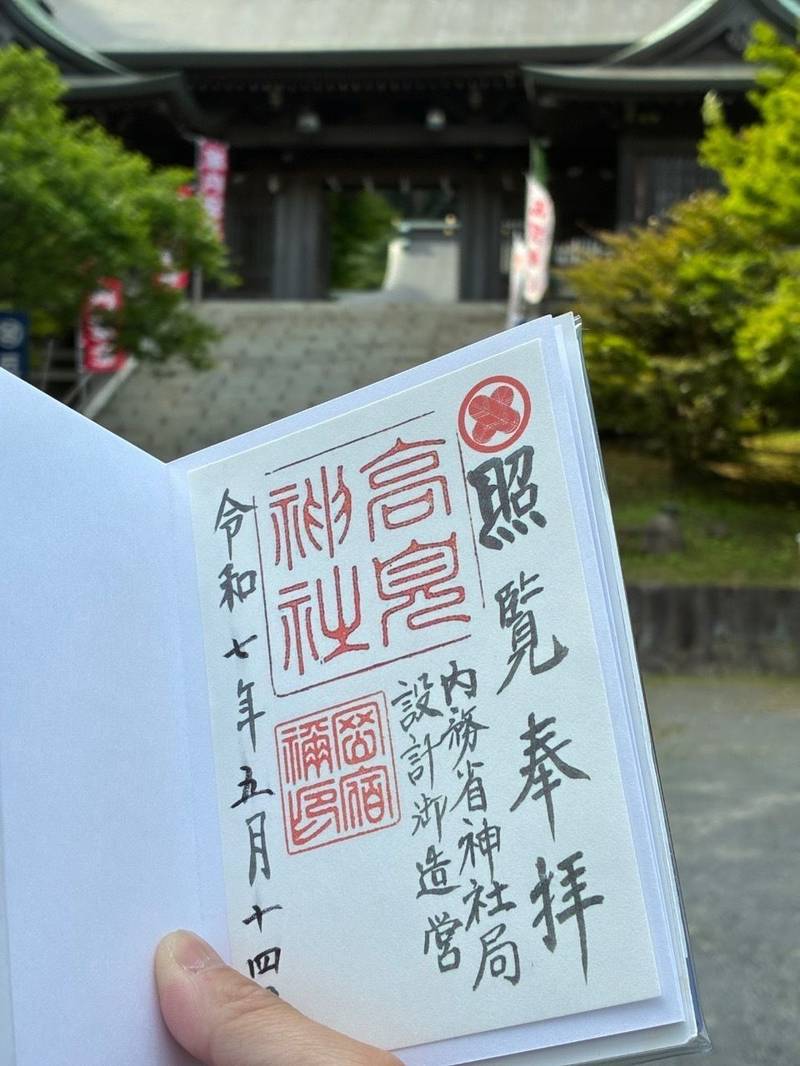 照覧奉拝
内務省神社局
設計御造営
高見
神社
令和七年五月十四